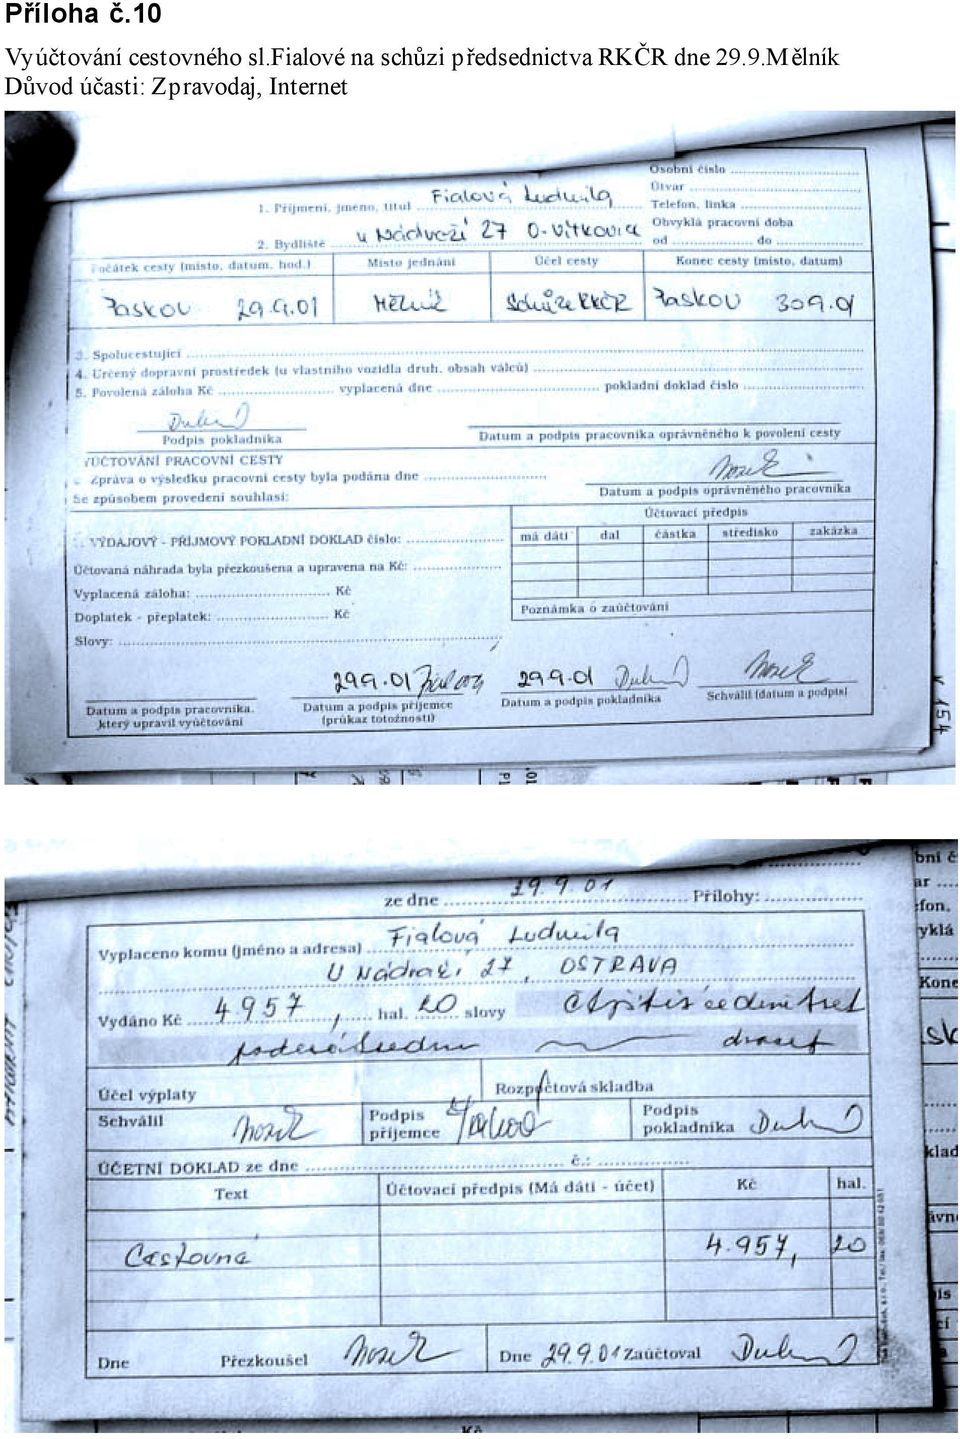 Příloha č.10
Vyúčtování cestovného sl.Fialové na schůzi předsednictva RKČR dne 29.9.Mělník
Důvod účasti: Zpravodaj, Internet
Osobní číslo
1. Příjmení, jméno, titul Fialová Ludmila Útvar
Telefon, linka
2. Bydliště u Nádraží 27 O-Vítkovice Obvyklá pracovní doba
od do
Počátek cesty (místo, datum, hod.) Místo jednání Účel cesty Konec cesty (místo, datum)
Paskov 29.9.01 Mělník Schůze RKČR Paskov 30.9.01
3. Spolucestující
4. Určený dopravní prostředek (u vlastního vozidla druh, obsah válců)
5. Povolená záloha Kč vyplacená dne pokladní doklad číslo
Podpis pokladníka Datum a podpis pracovníka oprávněného k povolení cesty
VYÚČTOVÁNÍ PRACOVNÍ CESTY
Zpráva o výsledku pracovní cesty byla podána dne
Se způsobem provedení souhlasí: Datum a podpis oprávněného pracovníka
Účtovací předpis
VÝDAJOVÝ - PŘÍJMOVÝ POKLADNÍ DOKLAD číslo: má dáti dal částka středisko zakázka
Účtovaná náhrada byla přezkoušena a upravena na Kč:
Vyplacená záloha: Kč
Doplatek - přeplatek: Kč Poznámka o zaúčtování
Slovy:
29.9.01 Fialová 29.9.01
Datum a podpis pracovníka, který upravil vyúčtování Datum a podpis příjemce (průkaz totožnosti) Datum a podpis pokladníka Schválil (datum a podpis)
ze dne 29.9.01 Přílohy:
Vyplaceno komu (jméno a adresa) Fialová Ludmila
U Nádraží 27, OSTRAVA
Vydáno Kč 4.957, hal. 20 slovy Čtyřitisícedevítset
padesátsedm dvacet
Účel výplaty Rozpočtová skladba
Schválil Podpis příjemce Podpis pokladníka
ÚČETNÍ DOKLAD ze dne č.:
Text Účtovací předpis (Má dáti - účet) Kč hal.
Cestovné 4.957, 20
Dne Přezkoušel Dne 29.9.01 Zaúčtoval